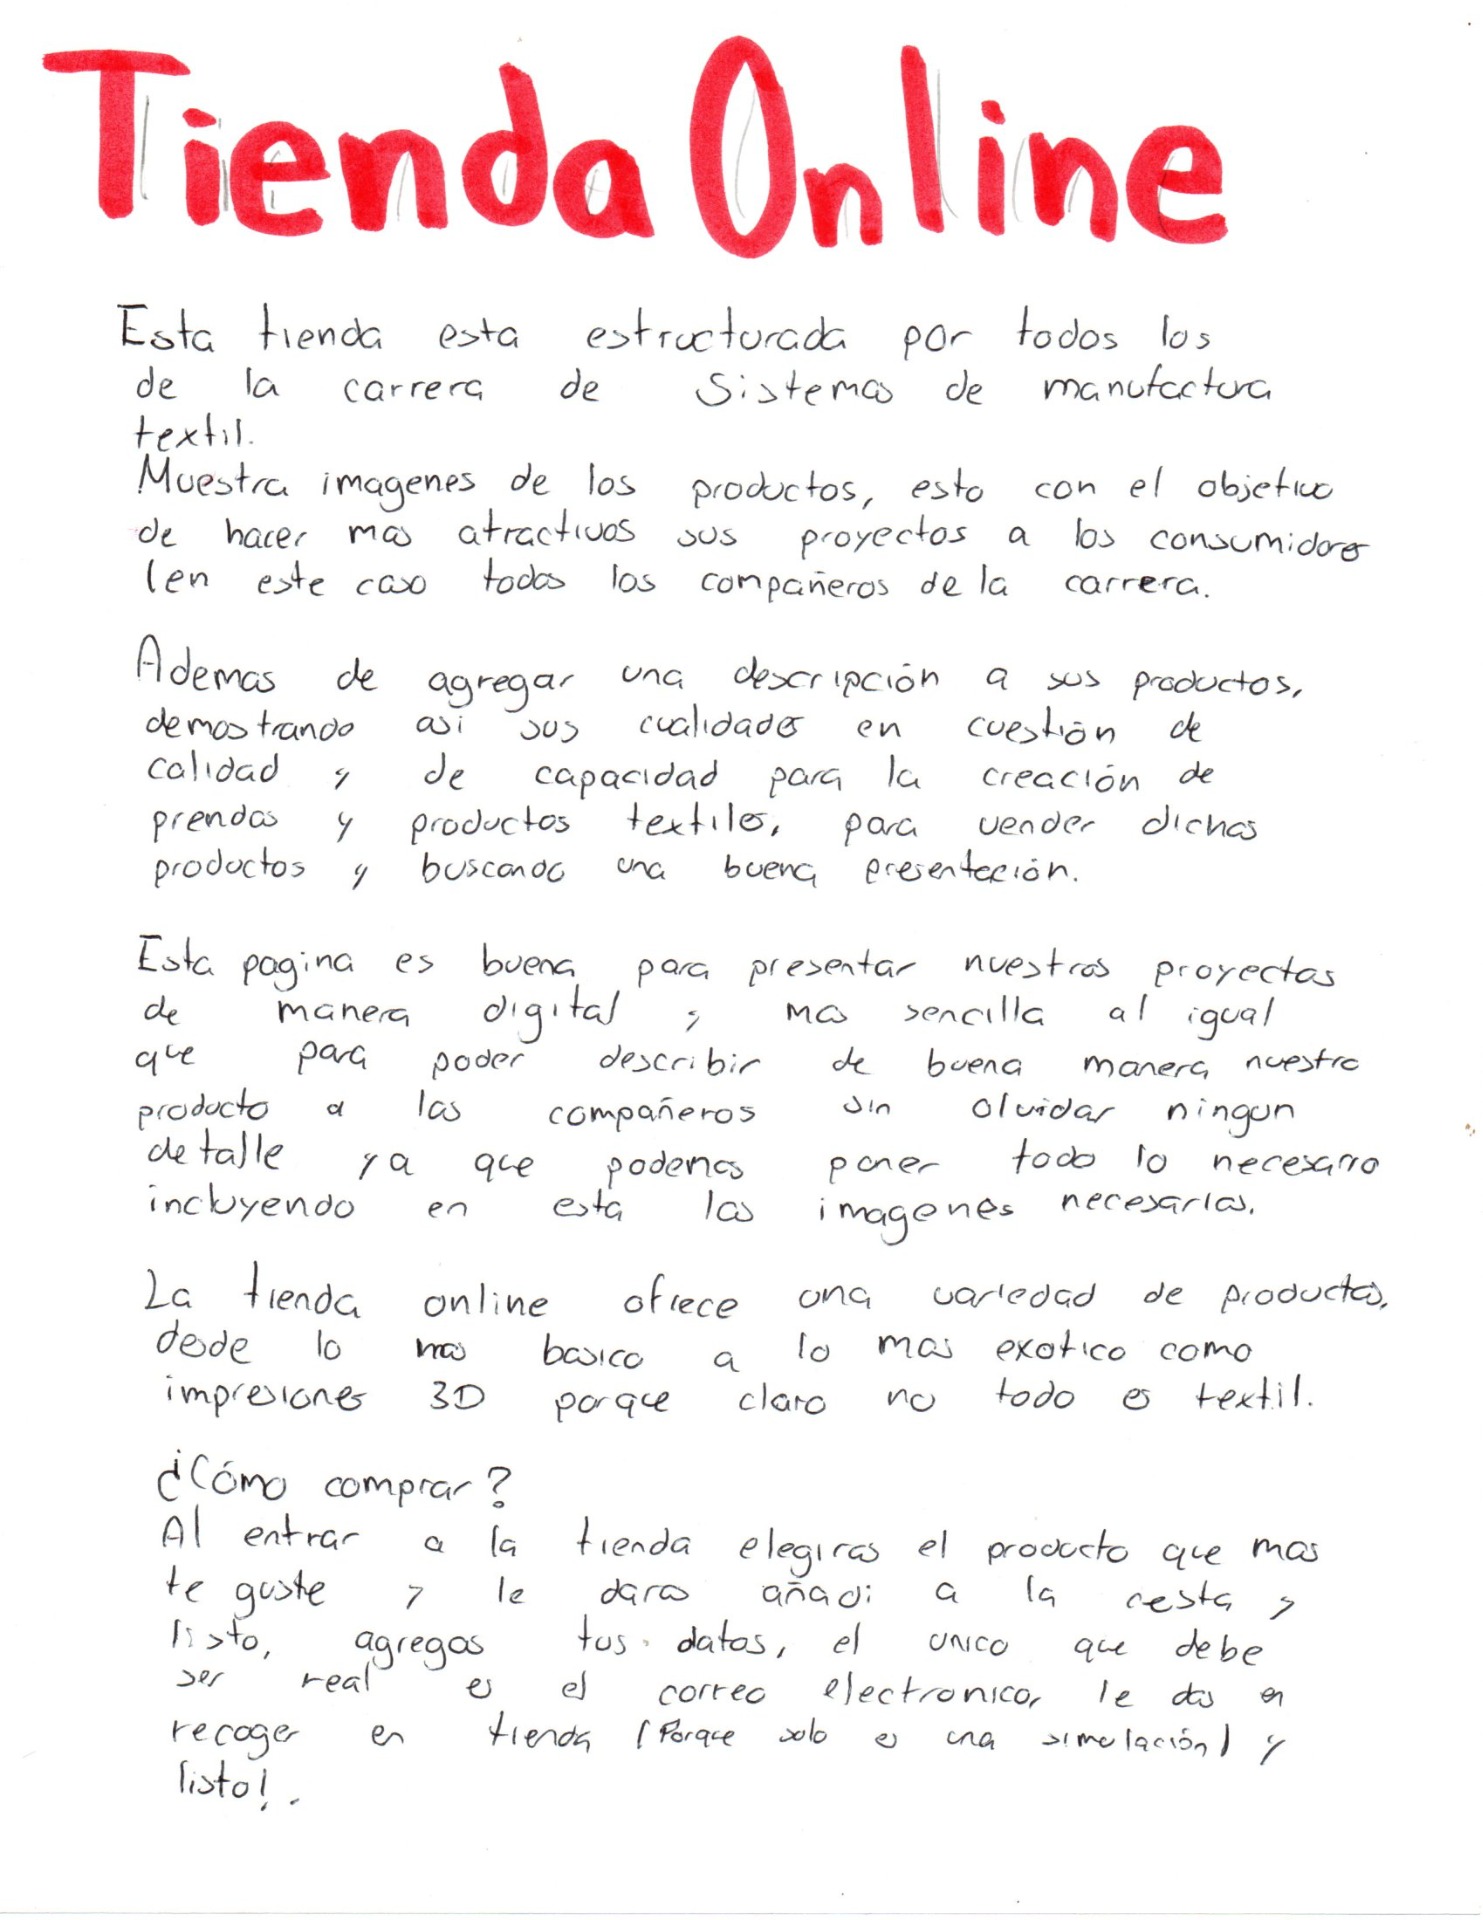 Tienda Online
Esta tienda esta estructurada por todos los
de la carrera de Sistemas de manufactura
textil.
Muestra imagenes de los productos, esto con el objetivo
de hacer mas atractivos sus proyectos a los consumidores
(en este caso todos los compañeros de la carrera.
Ademas de agregar una descripción a sus productos,
demostrando asi sus cualidades en cuestión de
calidad y de capacidad para la creación de
prendas y productos textiles, para vender dichos
productos y buscando una buena presentación.
Esta pagina es buena para presentar nuestros proyectos
de manera digital y mas sencilla al igual
que para poder describir de buena manera nuestro
producto a los compañeros sin olvidar ningun
detalle ya que podemos poner todo lo necesario
incluyendo en esta las imagenes necesarias.
La tienda online ofrece una variedad de productos,
desde lo mas basico a lo mas exotico como
impresiones 3D porque claro no todo es textil.
¿Cómo comprar?
Al entrar a la tienda elegiras el producto que mas
te guste y le daras añadi a la cesta y
listo, agregas tus datos, el unico que debe
ser real es el correo electronico, le das en
recoger en tienda (Porque solo es una simulación) y
listo!.